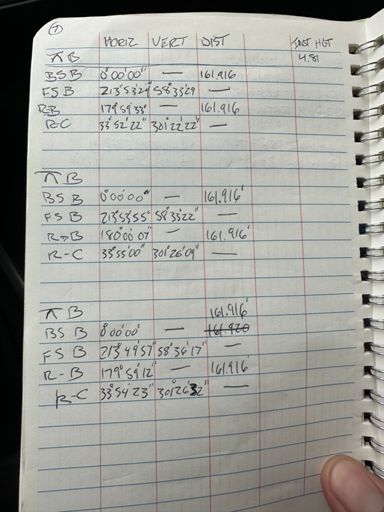 7
HORIZ VERT DIST INST HGT
⊼ B 4.81
BS B 0°00'00" — 161.916
FS B 213°53'29" 58°33'29 —
R B 179°59'33" — 161.916
R-C 33°52'22" 301°22'22" —
⊼ B
BS B 0°00'00" — 161.916'
FS B 213°53'55" 58°33'22" —
R-B 180°00'07" — 161.916'
R-C 33°55'00" 301°26'09" —
⊼ B 161.916'
BS B 0°00'00' — 161.920
FS B 213°49'57" 58°36'17" —
R-B 179°59'12" — 161.916'
R-C 33°54'23" 301°26'32" —